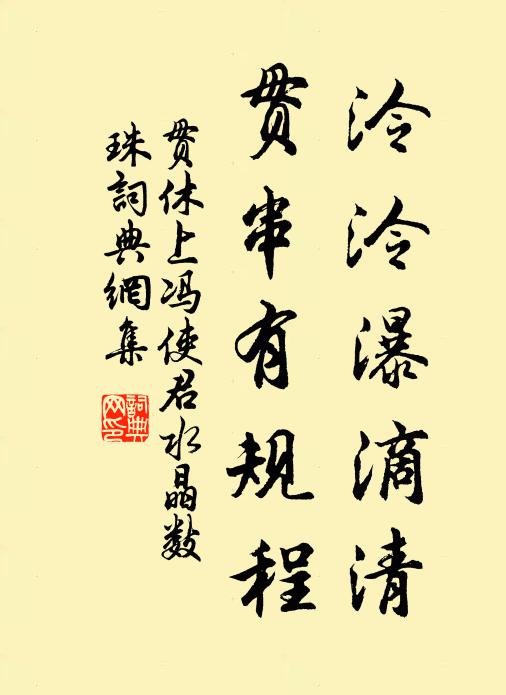 泠泠瀑滴清
贯串有规程
贯休上冯使君水晶数
珠詞典網集
詞典网印